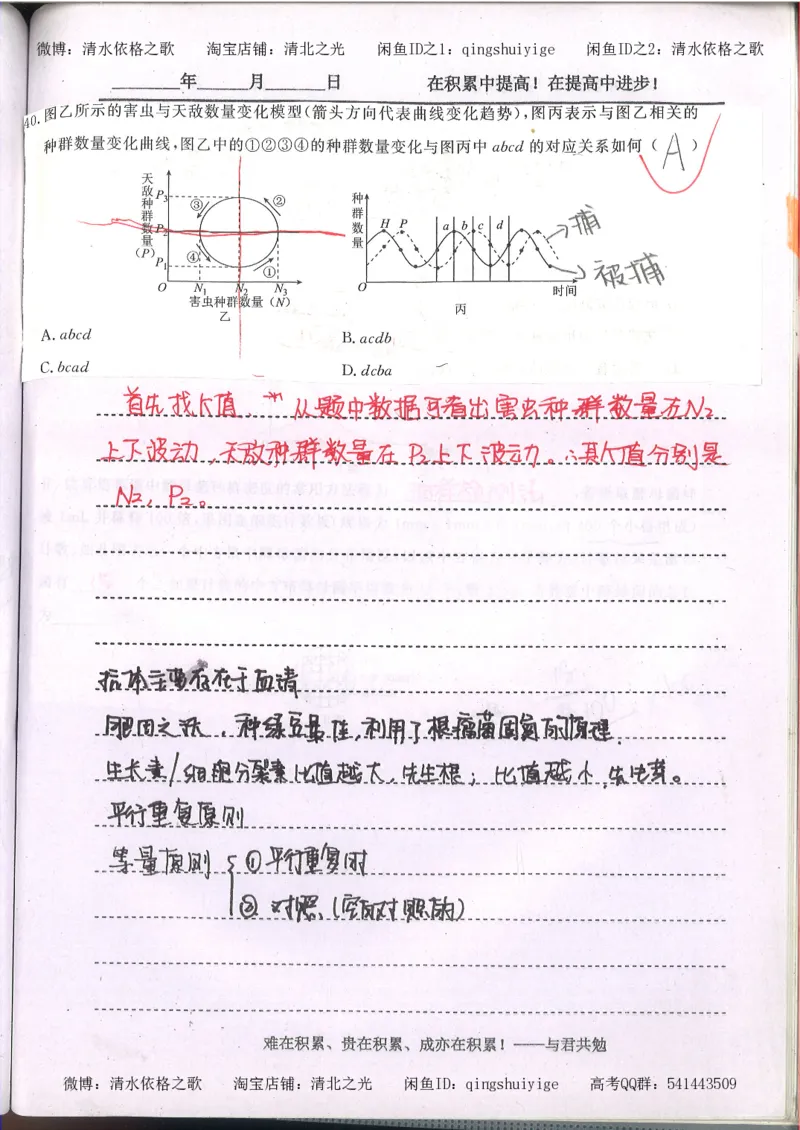 微博：清水依格之歌 淘宝店铺：清北之光 闲鱼ID之1：qingshuiyige 闲鱼ID之2：清水依格之歌
年 月 日 在积累中提高！在提高中进步！
40.图乙所示的害虫与天敌数量变化模型(箭头方向代表曲线变化趋势),图丙表示与图乙相关的
种群数量变化曲线,图乙中的①②③④的种群数量变化与图丙中 abcd 的对应关系如何( A )
天敌种群数量(P)
P3
P2
P1
③ ②
④ ①
O N1 N2 N3
害虫种群数量(N)
乙
种群数量
H P a b c d
捕
被捕
O 时间
丙
A. abcd B. acdb
C. bcad D. dcba
首先找K值. 从题中数据可看出害虫种群数量在N2
上下波动,天敌种群数量在P2上下波动。∴其K值分别是
N2, P2。
抗体主要存在于血清
肥田之法，种绿豆最佳,利用了根瘤菌固氮的原理.
生长素/细胞分裂素比值越大,先生根；比值越小,先生芽。
平行重复原则
等量原则 ①平行重复时
② 对照(空白对照的)
难在积累、贵在积累、成亦在积累！——与君共勉
微博：清水依格之歌 淘宝店铺：清北之光 闲鱼ID：qingshuiyige 高考QQ群：541443509